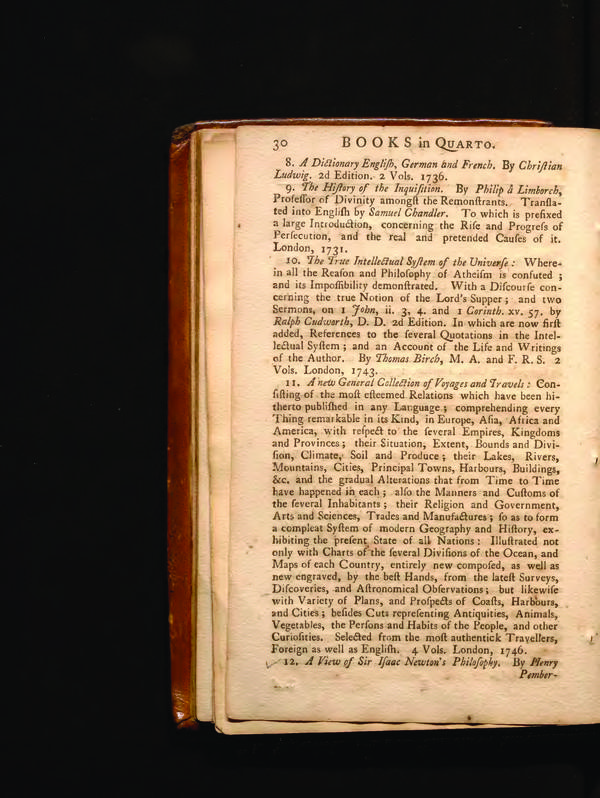 30 BOOKS in QUARTO.
8. A Dictionary Engliſh, German and French. By Chriſtian
Ludwig. 2d Edition. 2 Vols. 1736.
9. The Hiſtory of the Inquiſition. By Philip â Limborch,
Profeſſor of Divinity amongſt the Remonſtrants. Tranſla-
ted into Engliſh by Samuel Chandler. To which is prefixed
a large Introduction, concerning the Riſe and Progreſs of
Perſecution, and the real and pretended Cauſes of it.
London, 1731.
10. The True Intellectual Syſtem of the Univerſe: Where-
in all the Reaſon and Philoſophy of Atheiſm is confuted;
and its Impoſſibility demonſtrated. With a Diſcourſe con-
cerning the true Notion of the Lord's Supper; and two
Sermons, on 1 John, ii. 3, 4. and 1 Corinth. xv. 57. by
Ralph Cudworth, D. D. 2d Edition. In which are now firſt
added, References to the ſeveral Quotations in the Intel-
lectual Syſtem; and an Account of the Life and Writings
of the Author. By Thomas Birch, M. A. and F. R. S. 2
Vols. London, 1743.
11. A new General Collection of Voyages and Travels: Con-
ſiſting of the moſt eſteemed Relations which have been hi-
therto publiſhed in any Language; comprehending every
Thing remarkable in its Kind, in Europe, Aſia, Africa and
America, with reſpect to the ſeveral Empires, Kingdoms
and Provinces; their Situation, Extent, Bounds and Divi-
ſion, Climate, Soil and Produce; their Lakes, Rivers,
Mountains, Cities, Principal Towns, Harbours, Buildings,
&c. and the gradual Alterations that from Time to Time
have happened in each; alſo the Manners and Cuſtoms of
the ſeveral Inhabitants; their Religion and Government,
Arts and Sciences, Trades and Manufactures; ſo as to form
a compleat Syſtem of modern Geography and Hiſtory, ex-
hibiting the preſent State of all Nations: Illuſtrated not
only with Charts of the ſeveral Diviſions of the Ocean, and
Maps of each Country, entirely new compoſed, as well as
new engraved, by the beſt Hands, from the lateſt Surveys,
Diſcoveries, and Aſtronomical Obſervations; but likewiſe
with Variety of Plans, and Proſpects of Coaſts, Harbours,
and Cities; beſides Cuts repreſenting Antiquities, Animals,
Vegetables, the Perſons and Habits of the People, and other
Curioſities. Selected from the moſt authentick Travellers,
Foreign as well as Engliſh. 4 Vols. London, 1746.
12. A View of Sir Iſaac Newton's Philoſophy. By Henry
Pember-